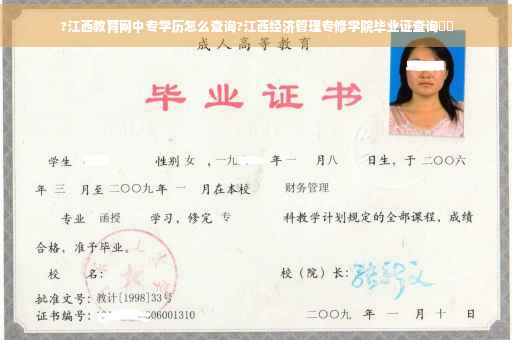 ?江西教育网中专学历怎么查询?江西经济管理专修学院毕业证查询
成人高等教育
毕业证书
学生 性别 女 ，一九 年一 月八 日生，于二〇〇六
年 三 月至二〇〇九年 一 月在本校 财务管理
专业 函授 学习，修完 专 科教学计划规定的全部课程，成绩
合格，准予毕业。
校 名： 校（院）长：
批准文号：教计[1998]33号
证书编号： 06001310 二〇〇九 年 一 月 十 日